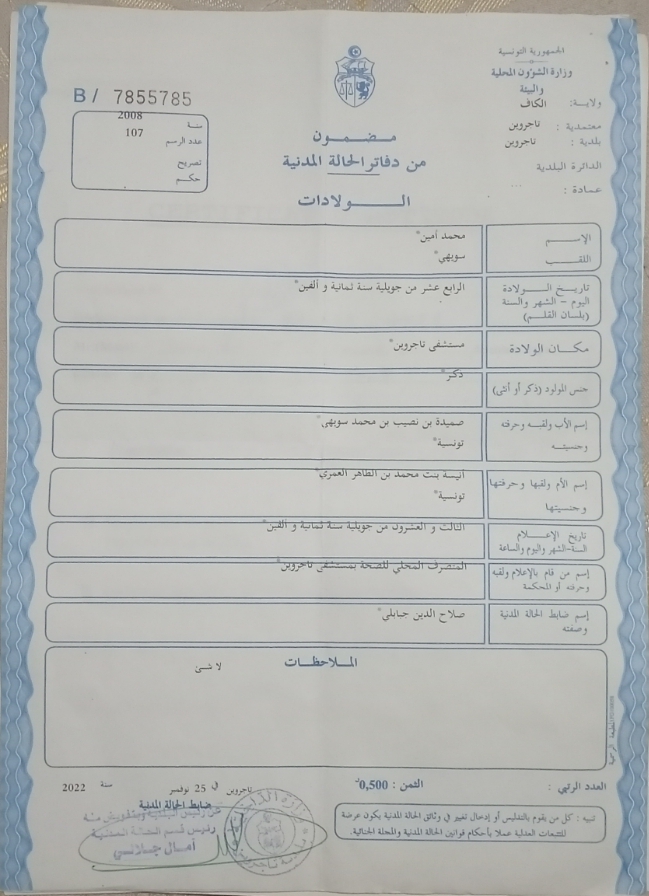 الجمهورية التونسية
وزارة الشؤون المحلية
والبيئة
ولاية: الكاف
معتمدية : تاجروين
بلدية : تاجروين
الدائرة البلدية
عمادة :
B/ 7855785
سنة 2008
عدد الرسم 107
تصريح
حكم
مضمون
من دفاتر الحالة المدنية
الولادات
الإسم محمد أمين*
اللقب سويهي*
تاريخ الولادة الرابع عشر من جويلية سنة ثمانية و ألفين*
اليوم - الشهر والسنة
(بلسان القلم)
مكان الولادة مستشفى تاجروين*
جنس المولود (ذكر أو أنثى) ذكر*
إسم الأب ولقبه وحرفته صميدة بن نصيب بن محمد سويهي*
وجنسيته تونسية*
إسم الأم ولقبها وحرفتها أنيسة بنت محمد بن الطاهر العمري*
وجنسيتها تونسية*
تاريخ الإعلام الثالث و العشرون من جويلية سنة ثمانية و ألفين*
السنة-الشهر واليوم والساعة
إسم من قام بالإعلام ولقبه المتصرف المحلي للصحة بمستشفى تاجروين*
وحرفته أو المحكمة
إسم ضابط الحالة المدنية صلاح الدين جبابلي*
وصفته
الملاحظات
لا شئ
المطبعة الرسمية
العدد الرتبي :
الثمن : 0,500د
تاجروين في 25 نوفمبر سنة 2022
ضابط الحالة المدنية
عن رئيس البلدية وبتفويض منه
رئيس قسم الحالة المدنية
أمال جلاسي
تنبيه : كل من يقوم بالتدليس أو إدخال تغيير في وثائق الحالة المدنية يكون عرضة
للتتبعات العدلية عملا بأحكام قوانين الحالة المدنية والمجلة الجنائية.